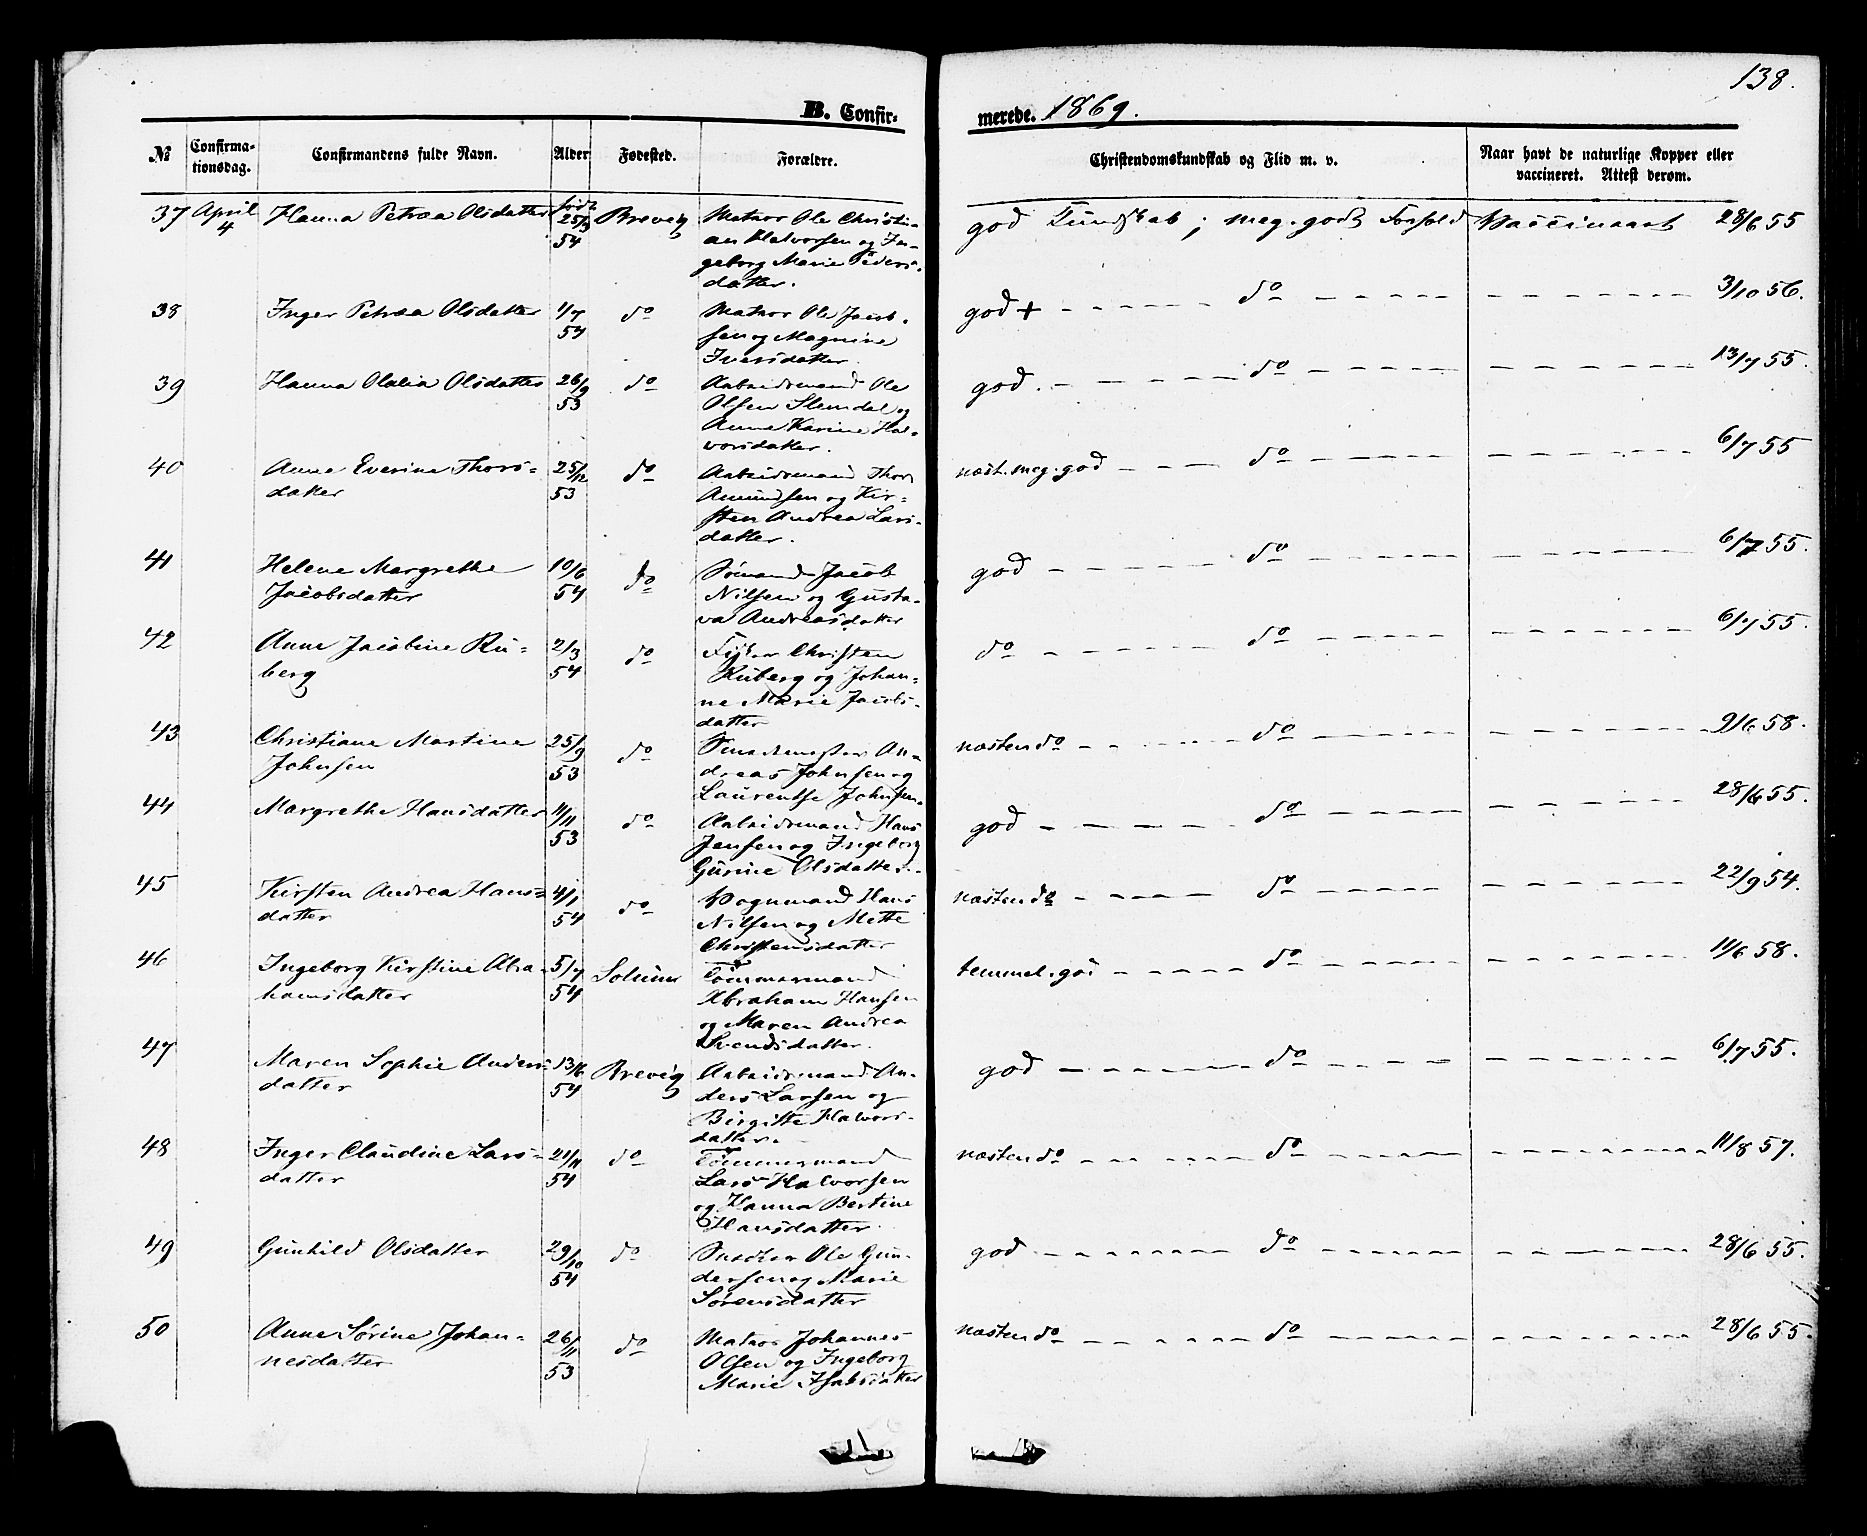 138.
B. Confir-
merede. 1869.
№
Confirma-
tionsdag.
Confirmandens fulde Navn.
Alder
Fødested.
Forældre.
Christendomskundskab og Flid m. v.
Naar havt de naturlige Kopper eller
vaccineret. Attest derom.
37 April 4 Hanna Petrea Olsdatter født 25/3 54 Brevig
Matros Ole Christi-
an Halvorsen og In-
geborg Marie Peders-
datter.
god Kundskab; meg. godt Forhold Vaccineret 28/6 55
38 Inger Petrea Olsdatter 4/7 54 do
Matros Ole Jacob-
sen og Magnine
Iversdatter.
god + do 3/10 56.
39 Hanna Olalia Olsdatter 26/9 53 do
Arbeidsmand Ole
Olsen Stemdal og
Anne Karine Hal-
vorsdatter.
god. do 13/7 55.
40 Anne Everine Thors-
datter 25/12 53 do
Arbeidsmand Thor
Amundsen og Kir-
sten Andrea Lars-
datter.
næst. meg. god do 6/7 55
41 Helene Margrethe
Jacobsdatter 10/6 54 do
Sømand Jacob
Nilsen og Gusta-
va Andreasdatter
god do 6/7 55.
42 Anne Jacobine Ru-
berg 2/3 54 do
Christen
Ruberg og Johan-
ne Marie Jacobs-
datter
do do 6/7 55.
43 Christiane Martine
Johnsen 25/9 53 do
An-
dreas Johnsen og
Laurentse Johnsen.
næsten do do 9/6 58.
44 Margrethe Hansdatter 11/11 53 do
Arbeidsmand Hans
Jensen og Ingeborg
Gurine Olsdatter.
god do 28/6 55.
45 Kirsten Andrea Hans-
datter 4/1 54 do
Vognmand Hans
Nilsen og Mette
Christensdatter
næsten do do 22/9 54.
46 Ingeborg Kirstine Abra-
hamsdatter 5/7 54 Solum
Tømmermand
Abraham Hansen
og Maren Andrea
Svendsdatter.
temmel. god do 11/6 58.
47 Maren Sophie Anders-
datter 13/6 54 Brevig
Arbeidsmand An-
ders Larsen og
Birgitte Halvors-
datter.
god do 6/7 55.
48 Inger Claudine Lars-
datter 21/11 54 do
Tømmermand
Lars Halvorsen
og Hanna Bertine
Hansdatter.
næsten do do 11/8 57.
49 Gunhild Olsdatter 29/10 54 do
Snedker Ole Gun-
dersen og Marie
Sørensdatter
god do 28/6 55.
50 Anne Sørine Johan-
nesdatter 26/11 53 do
Matros Johannes
Olsen og Ingeborg
Marie Isaksdatter
næsten do do 28/6 55.